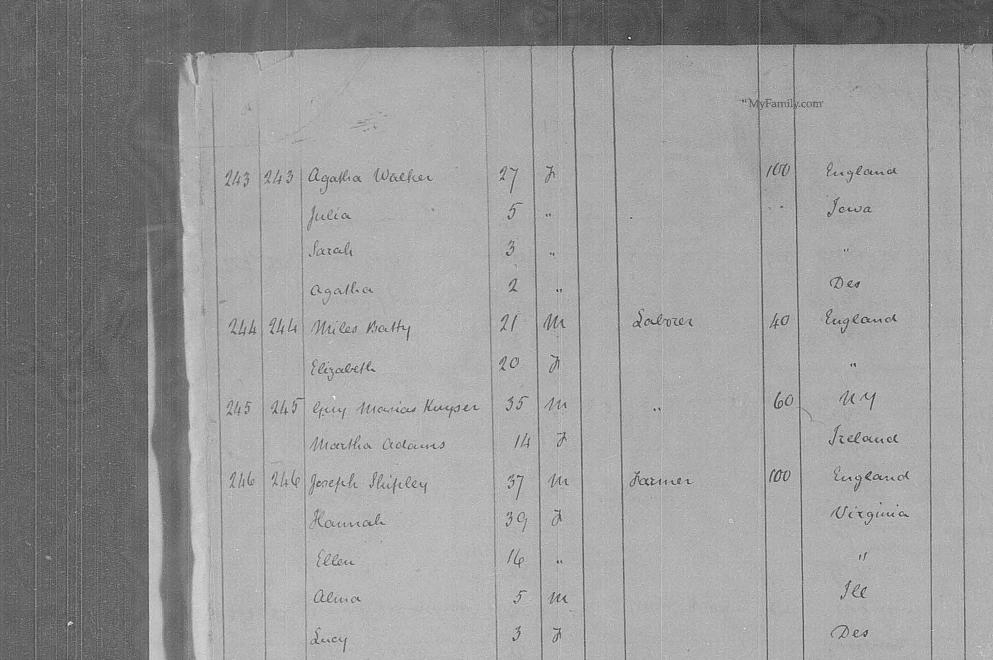 "MyFamily.com
243 243 Agatha Walker 27 F 100 England
Julia 5 " Iowa
Sarah 3 " "
Agatha 2 " Des
244 244 Miles Batty 21 M Laborer 40 England
Elizabeth 20 F "
245 245 Guy Marias Kuyser 35 M " 60 NY
Martha Adams 14 F Ireland
246 246 Joseph Shipley 37 M Farmer 100 England
Hannah 39 F Virginia
Ellen 16 " "
Alma 5 M Ill
Lucy 3 F Des